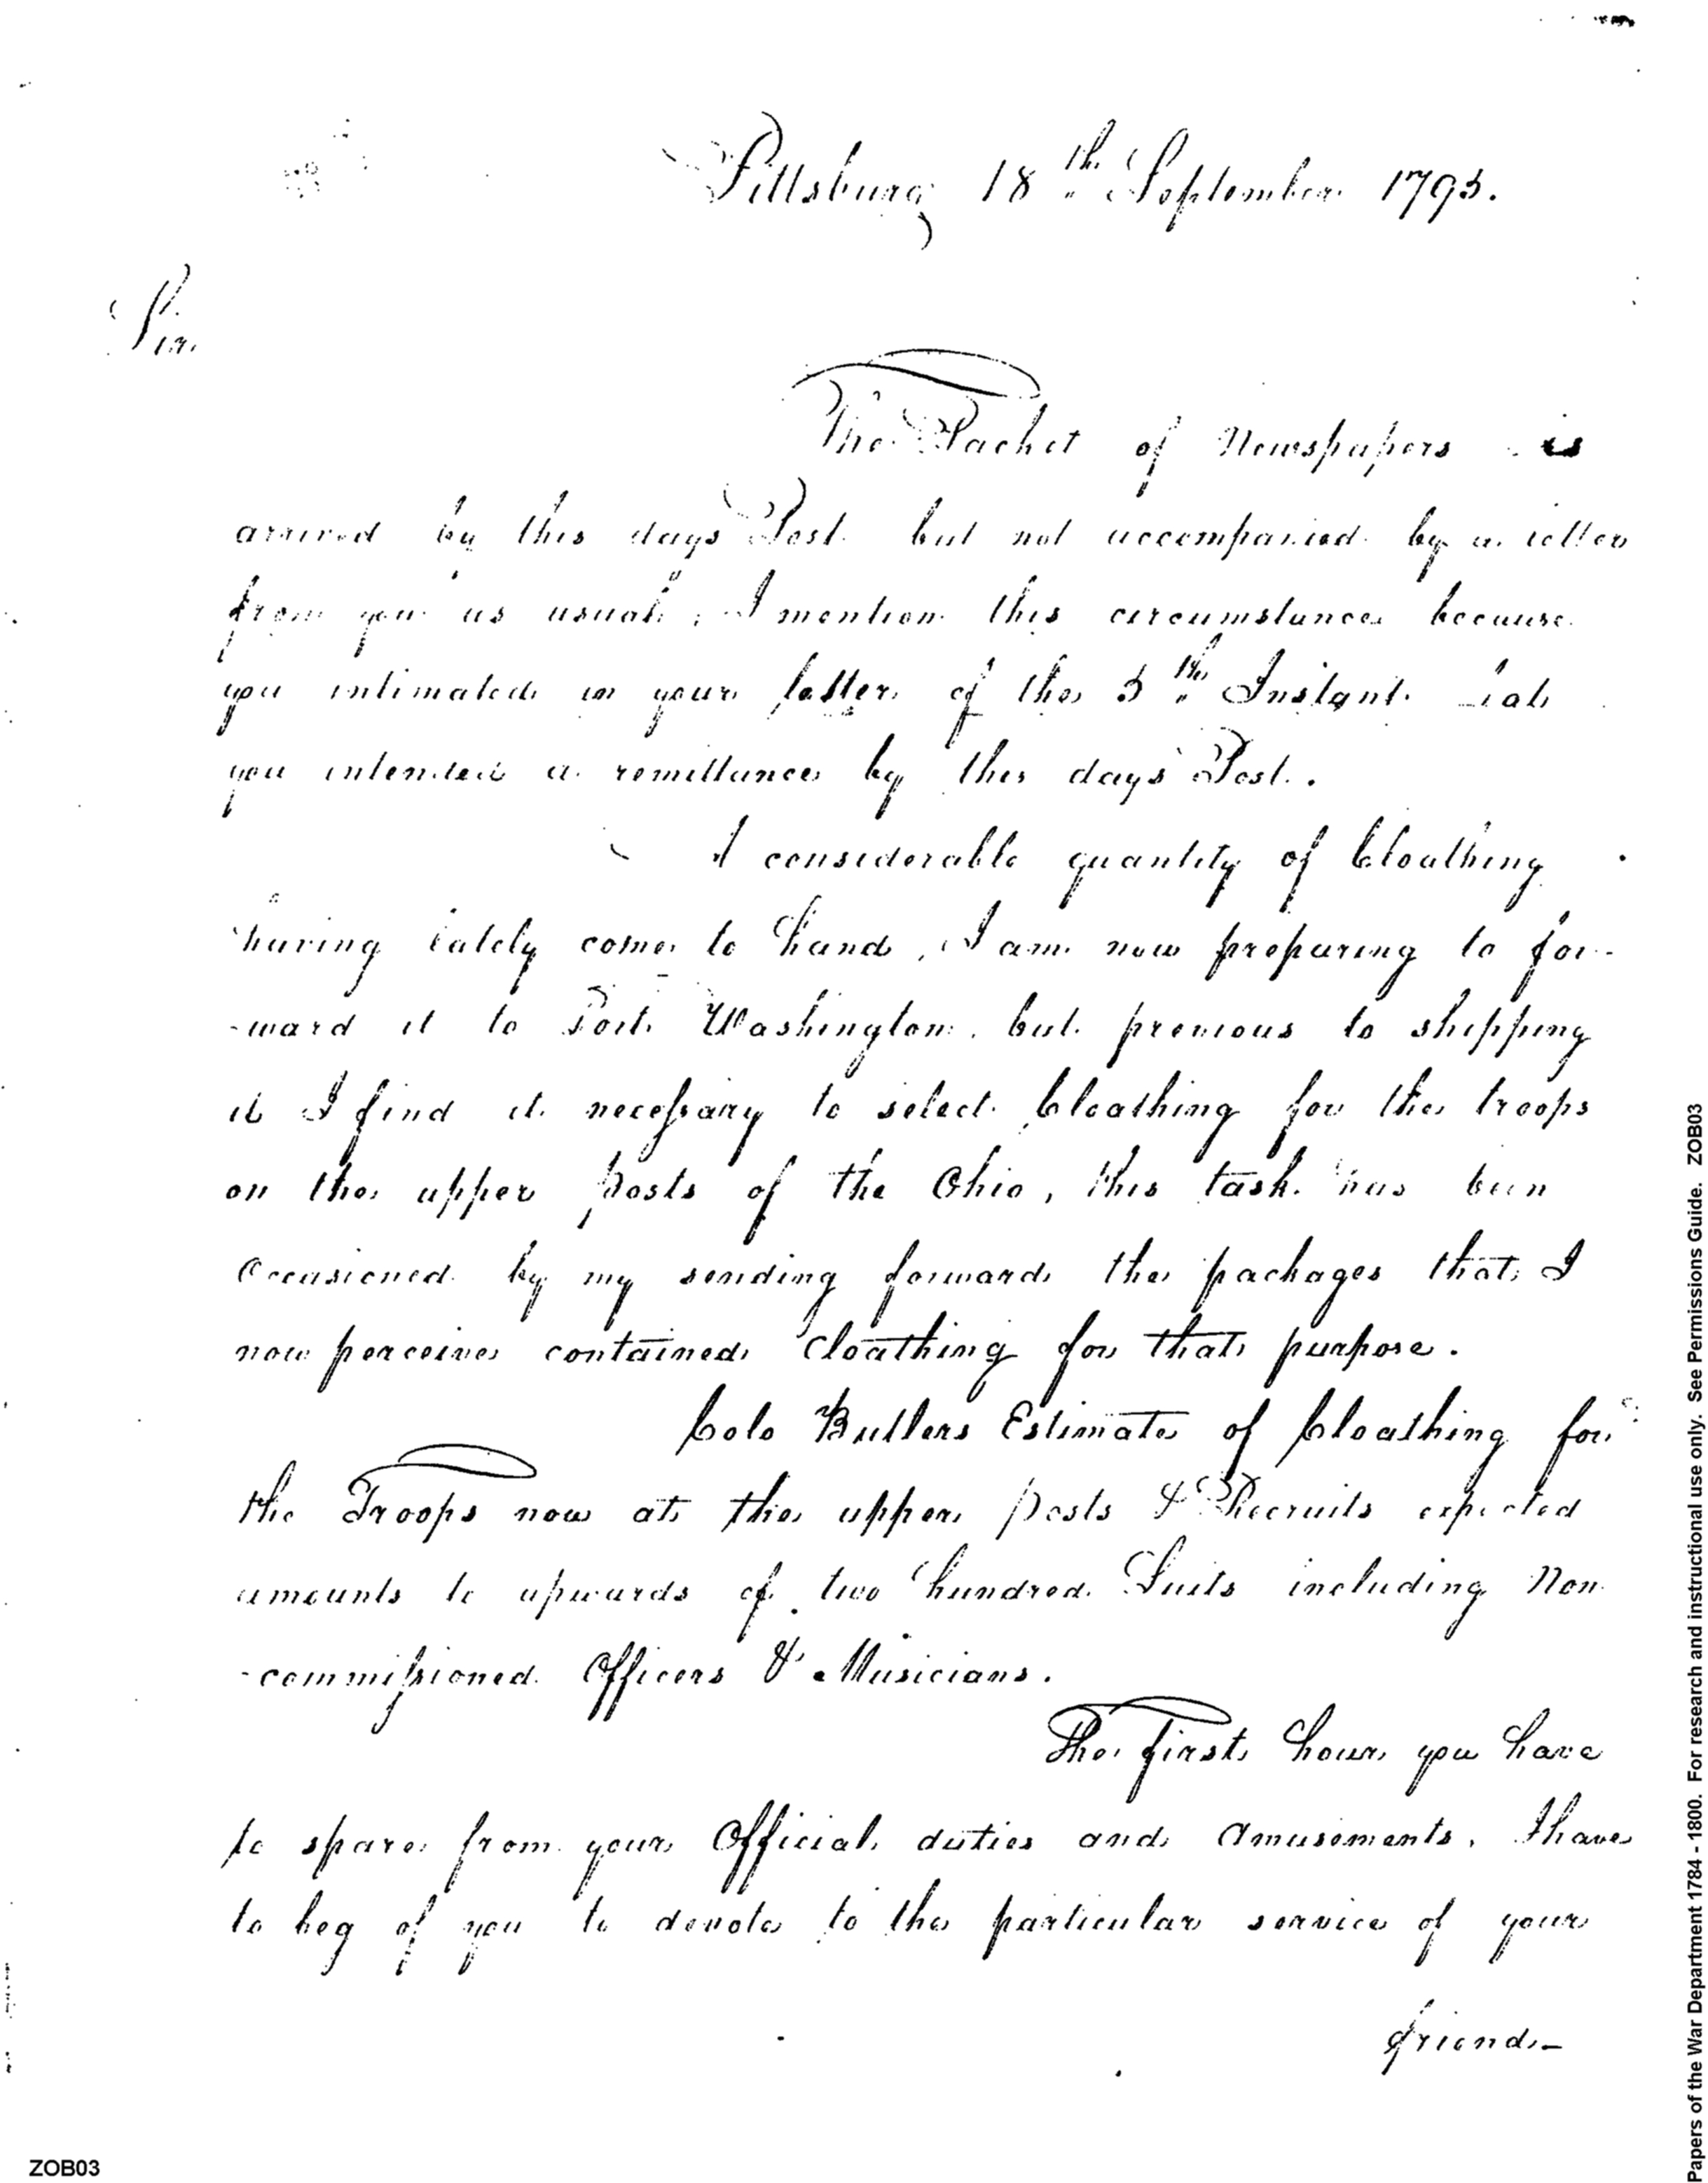 Pittsburg 18th September 1795.
Sir
The Packet of Newspapers is
arrived by this days Post but not accompanied by a letter
from you as usual, I mention this circumstance because
you intimated in your letter of the 5th Instant that
you intended a remittance by this days Post.
A considerable quantity of Cloathing
having lately come to hand, I am now preparing to for-
-ward it to Fort Washington, but previous to shipping
it I find it necessary to select Cloathing for the troops
on the upper posts of the Ohio, this task has been
Occasioned by my sending forward the packages that I
now perceive contained Cloathing for that purpose.
Colo Butlers Estimate of Cloathing for
the Troops now at the upper posts & Recruits expected
amounts to upwards of two hundred Suits including Non
-commissioned Officers & Musicians.
The first hour you have
to spare from your Official duties and Amusements, I have
to beg of you to devote to the particular service of your
friend-
ZOB03
Papers of the War Department 1784 - 1800. For research and instructional use only. See Permissions Guide. ZOB03